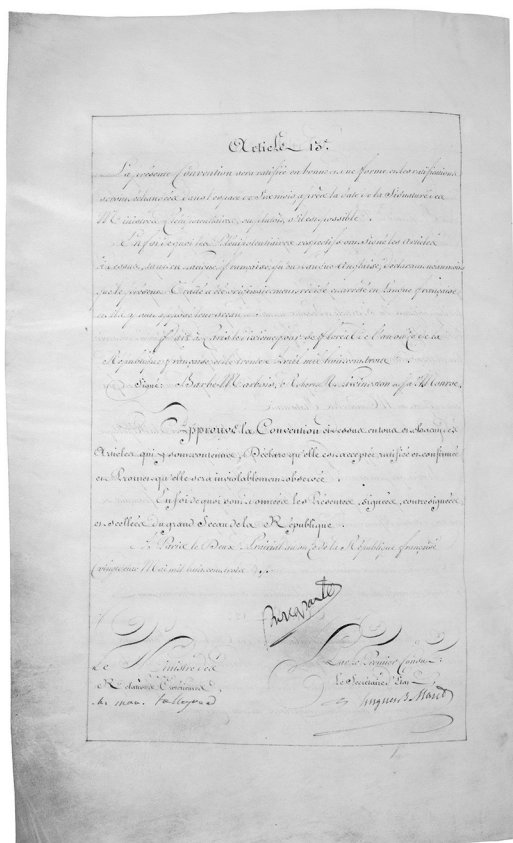 Article 13e.
La présente Convention sera ratifiée en bonne et due forme, et les ratifications
seront échangées dans l'espace de Six mois après la date de la Signature des
Ministres Plénipotentiaires, ou plutôt, s'il est possible.
En foi de quoi les Plénipotentiaires respectifs ont signé les articles
ci-dessus, tant en langue française qu'en langue anglaise, déclarant néanmoins
que le présent Traité a été originairement rédigé et arrêté en langue française,
et ils y ont apposé leur Sceau.
fait à Paris le dixième jour de floréal de l'an onze de la
République française, et le trente Avril mil huit cent trois
Signé: Barbé-Marbois,
Approuve la Convention ci-dessus en tous et chacun des
Articles qui y sont contenus, Déclare qu'elle est acceptée ratifiée et confirmée
et Promet qu'elle sera inviolablement observée
En foi de quoi sont données les Présentes, signées, contresignées
et scellées du grand Sceau de la République.
à Paris le Deux Prairial an onze de la République française
(vingt deux Mai mil huit cent trois)
Bonaparte
Le Ministre des
Relations Extérieures
ch. mau. talleyrand
Par le Premier Consul
Le Secrétaire d'Etat
hugues B. Maret